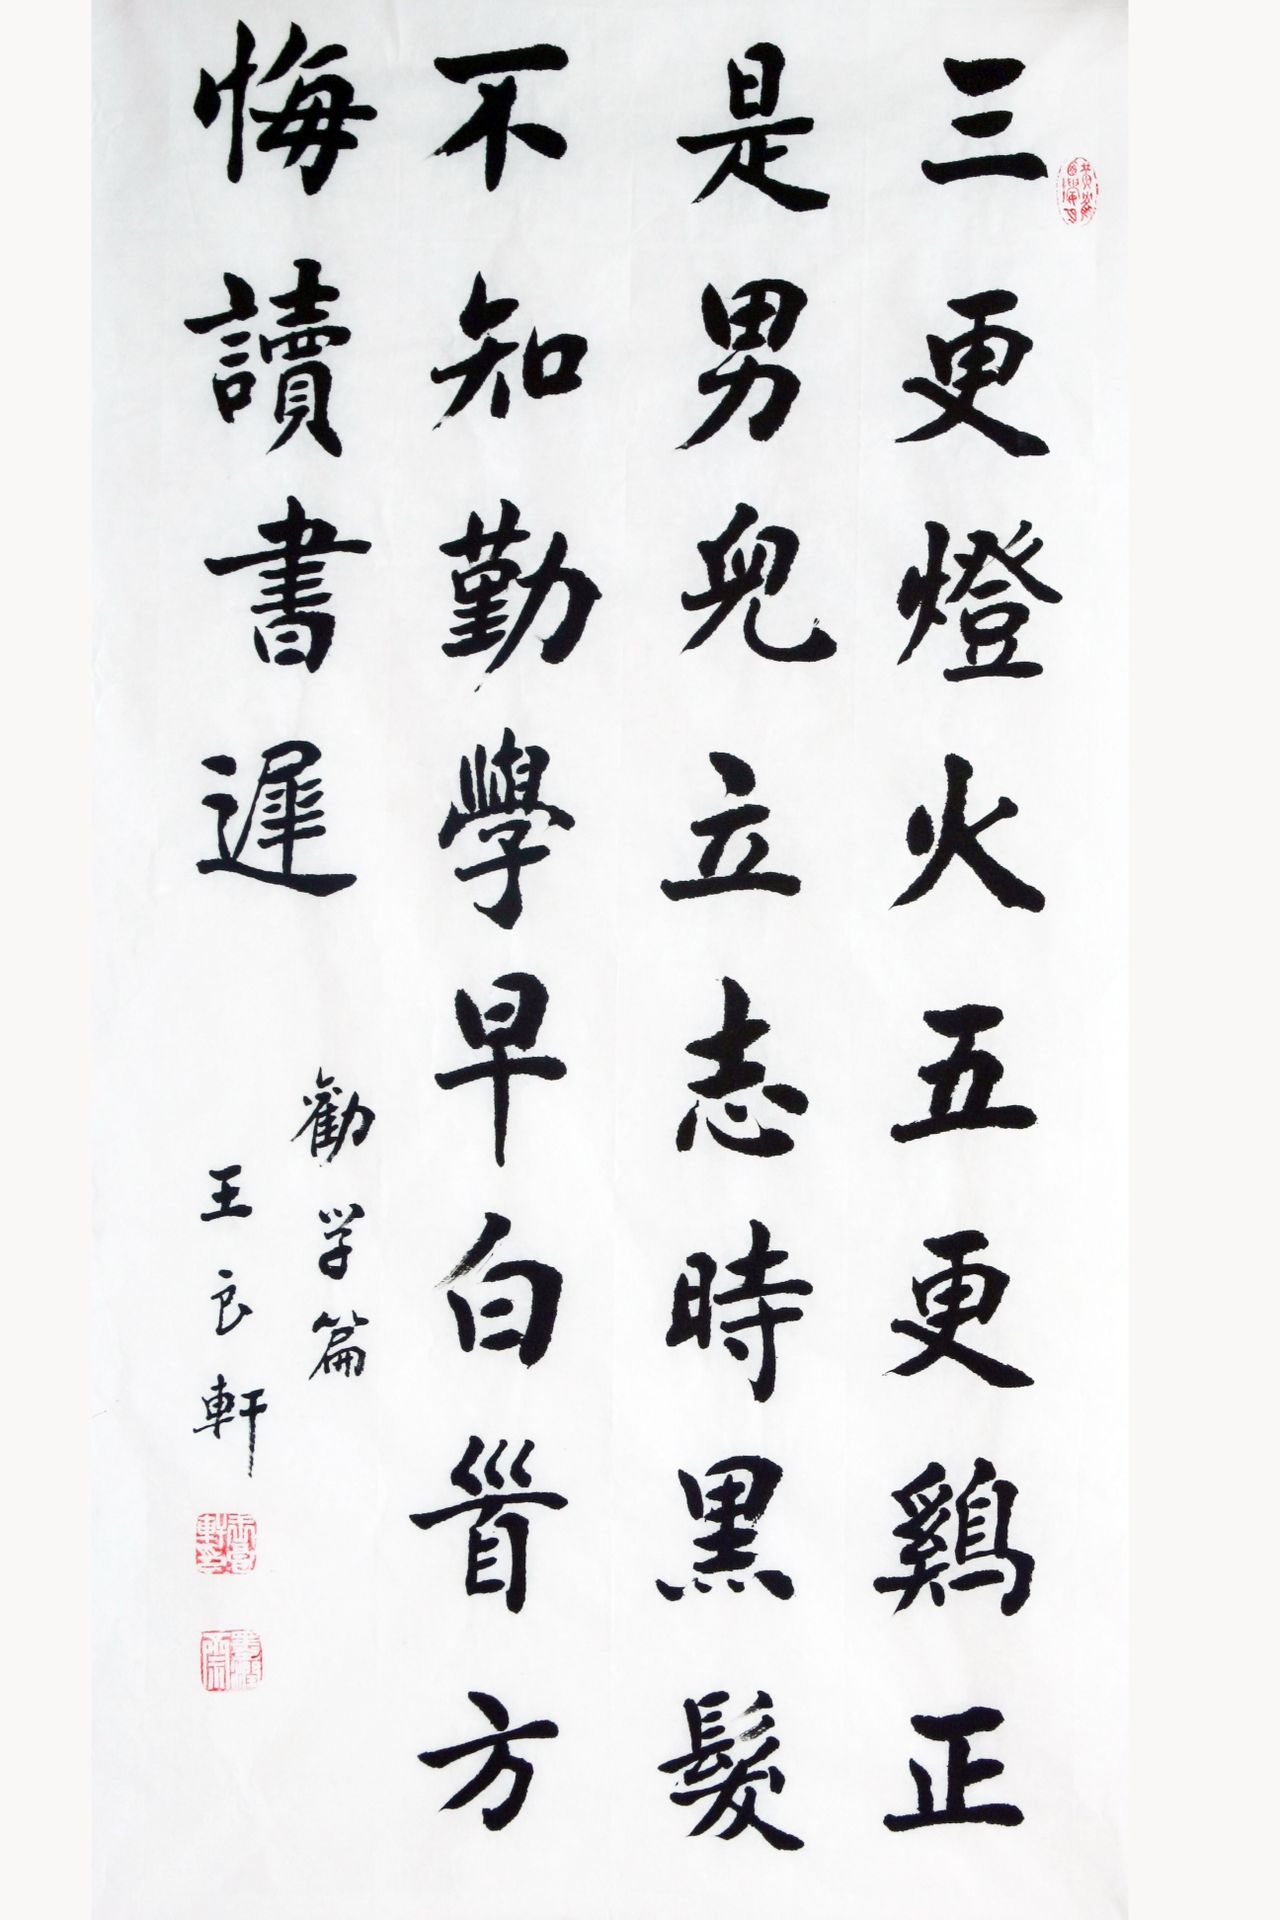 三更燈火五更鷄正
是男兒立志時黑髮
不知勤學早白首方
悔讀書遲
勸学篇
王良軒